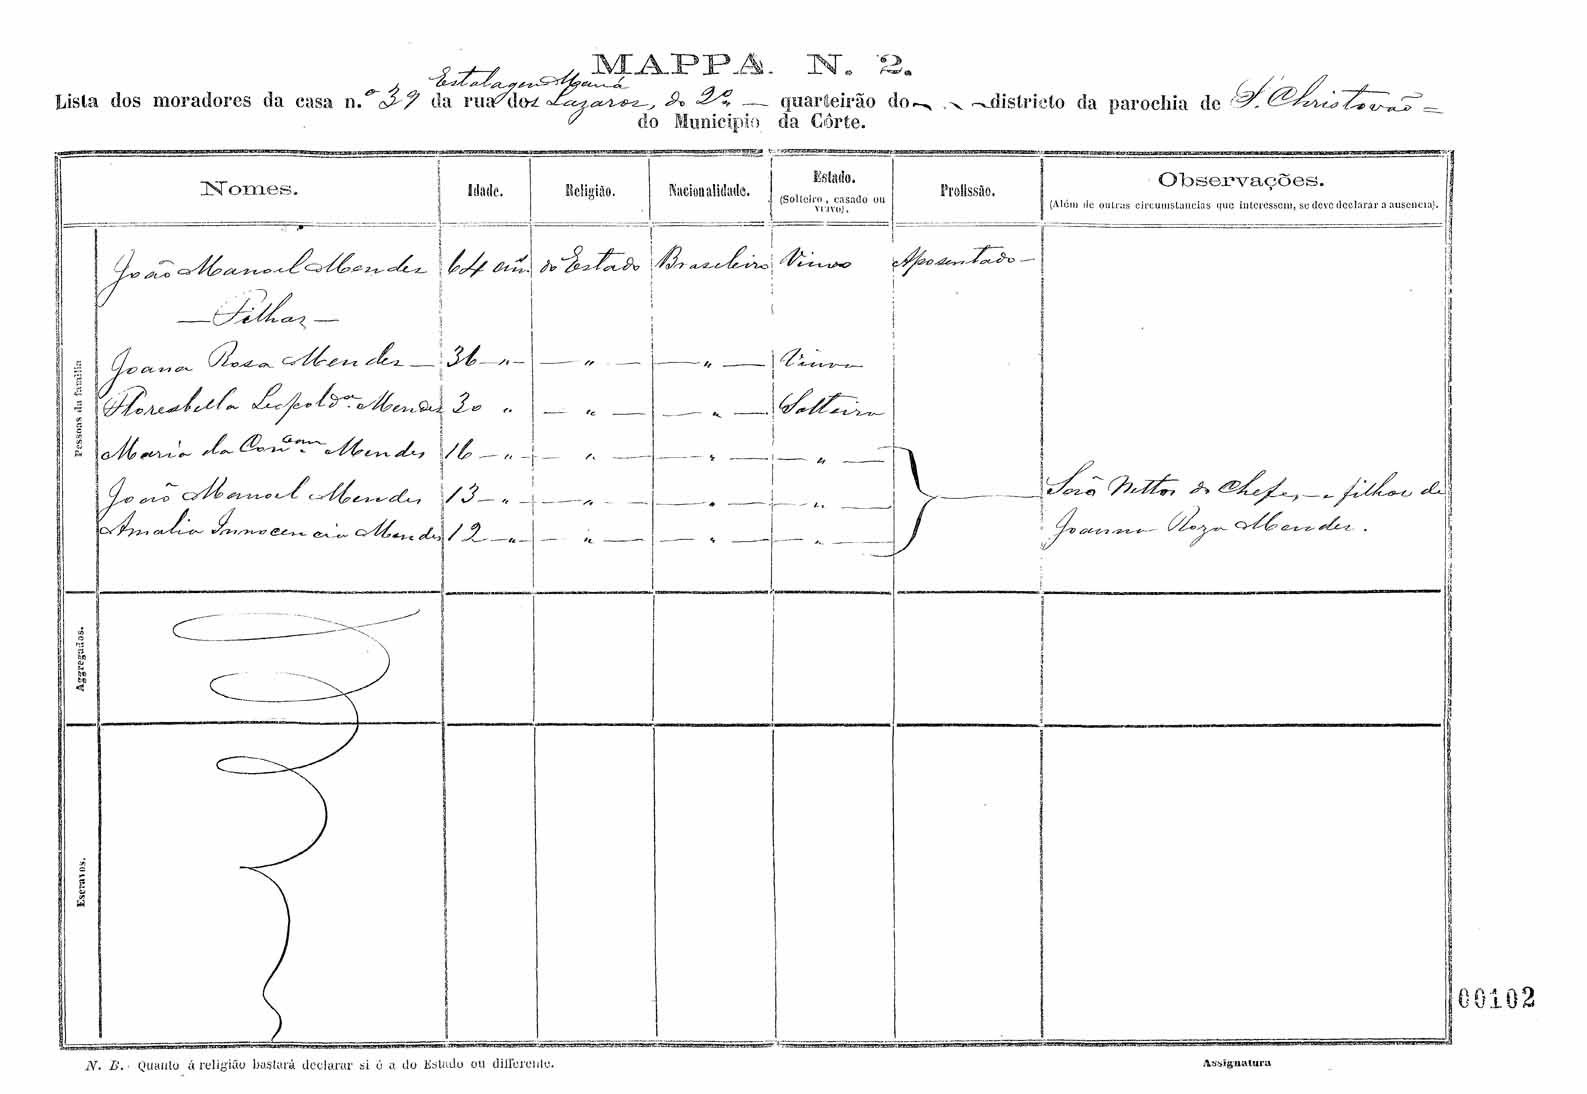 MAPPA. N. 2.
Estalagem Mauá
Lista dos moradores da casa n.º 39 da rua dos Lazaros, do 2º — quarteirão do districto da parochia de S. Christovão =
do Municipio da Côrte.
Nomes. Idade. Religião. Nacionalidade. Estado. (Solteiro, casado ou viuvo). Profissão. Observações. (Além de outras circumstancias que interessem, se deve declarar a ausencia).
Pessoas da familia
João Manoel Mendes 64 an. do Estado Brasileiro Viuvo Aposentado —
— Filhas —
Joana Rosa Mendes — 36 — " — — " — — " — Viuva
Florisbella Leopolda. Mendes 30 " — " — — " — Solteira
Maria da Concam. Mendes 16 — " — — " — — " — — " —
João Manoel Mendes 13 — " — — " — — " — — " — São Nettos do Chefe, — e filhos de
Amalia Innocencia Mendes 12 — " — — " — — " — — " — Joanna Roza Mendes.
Aggregados.
Escravos.
00102
N. B. Quanto á religião bastará declarar si é a do Estado ou differente. Assignatura